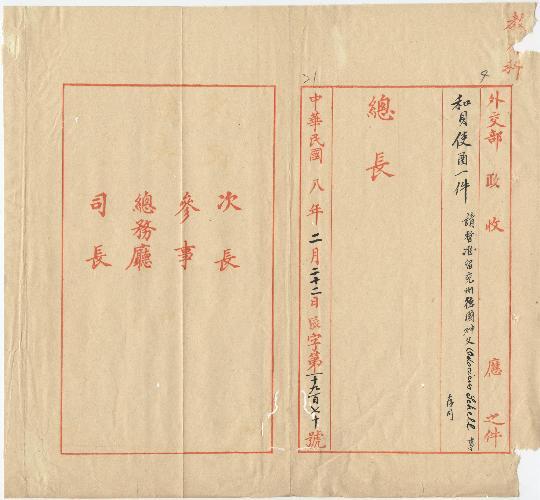 外交部 收 應 之件
和貝使函一件 請暫准留兗州德國神父 Schell
存
總長
中華民國八年二月二十二日 字第一千九百七十號
次長
參事
總務廳
司長